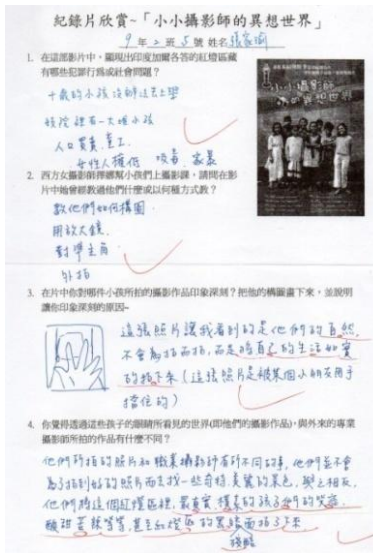 紀錄片欣賞~「小小攝影師的異想世界」
9年2班5號 姓名張家瑜
1. 在這部影片中，顯現出印度加爾各答的紅燈區藏
有哪些犯罪行為或社會問題？
十歲的小孩沒辦法去上學
妓院裡有一大堆小孩
人口買賣、童工
女性人權低 吸毒 家暴
小小攝影師
的異想世界
2. 西方女攝影師擇娜幫小孩們上攝影課，請問在影
片中她曾經教過他們什麼或以何種方式教？
教他們如何構圖.
用放大鏡.
對準主角
外拍
3. 在片中你對哪件小孩所拍的攝影作品印象深刻？把他的構圖畫下來，並說明
讓你印象深刻的原因~
這張照片讓我看到的是他們的自然,
不會為拍而拍,而是將自己的生活如實
的拍下來(這張照片是被某個小朋友用手
擋住的)
4. 你覺得透過這些孩子的眼睛所看見的世界(即他們的攝影作品)，與外來的專業
攝影師所拍的作品有什麼不同？
他們所拍的照片和職業攝影師有所不同的事,他們並不會
為了拍到好的照片而去找一些奇特、美麗的景色,與之相反,
他們將這個紅燈區裡,最真實、樸素的孩子們的笑容.
酸甜苦辣等等,甚至紅燈區的黑暗面拍了下來
殘酷